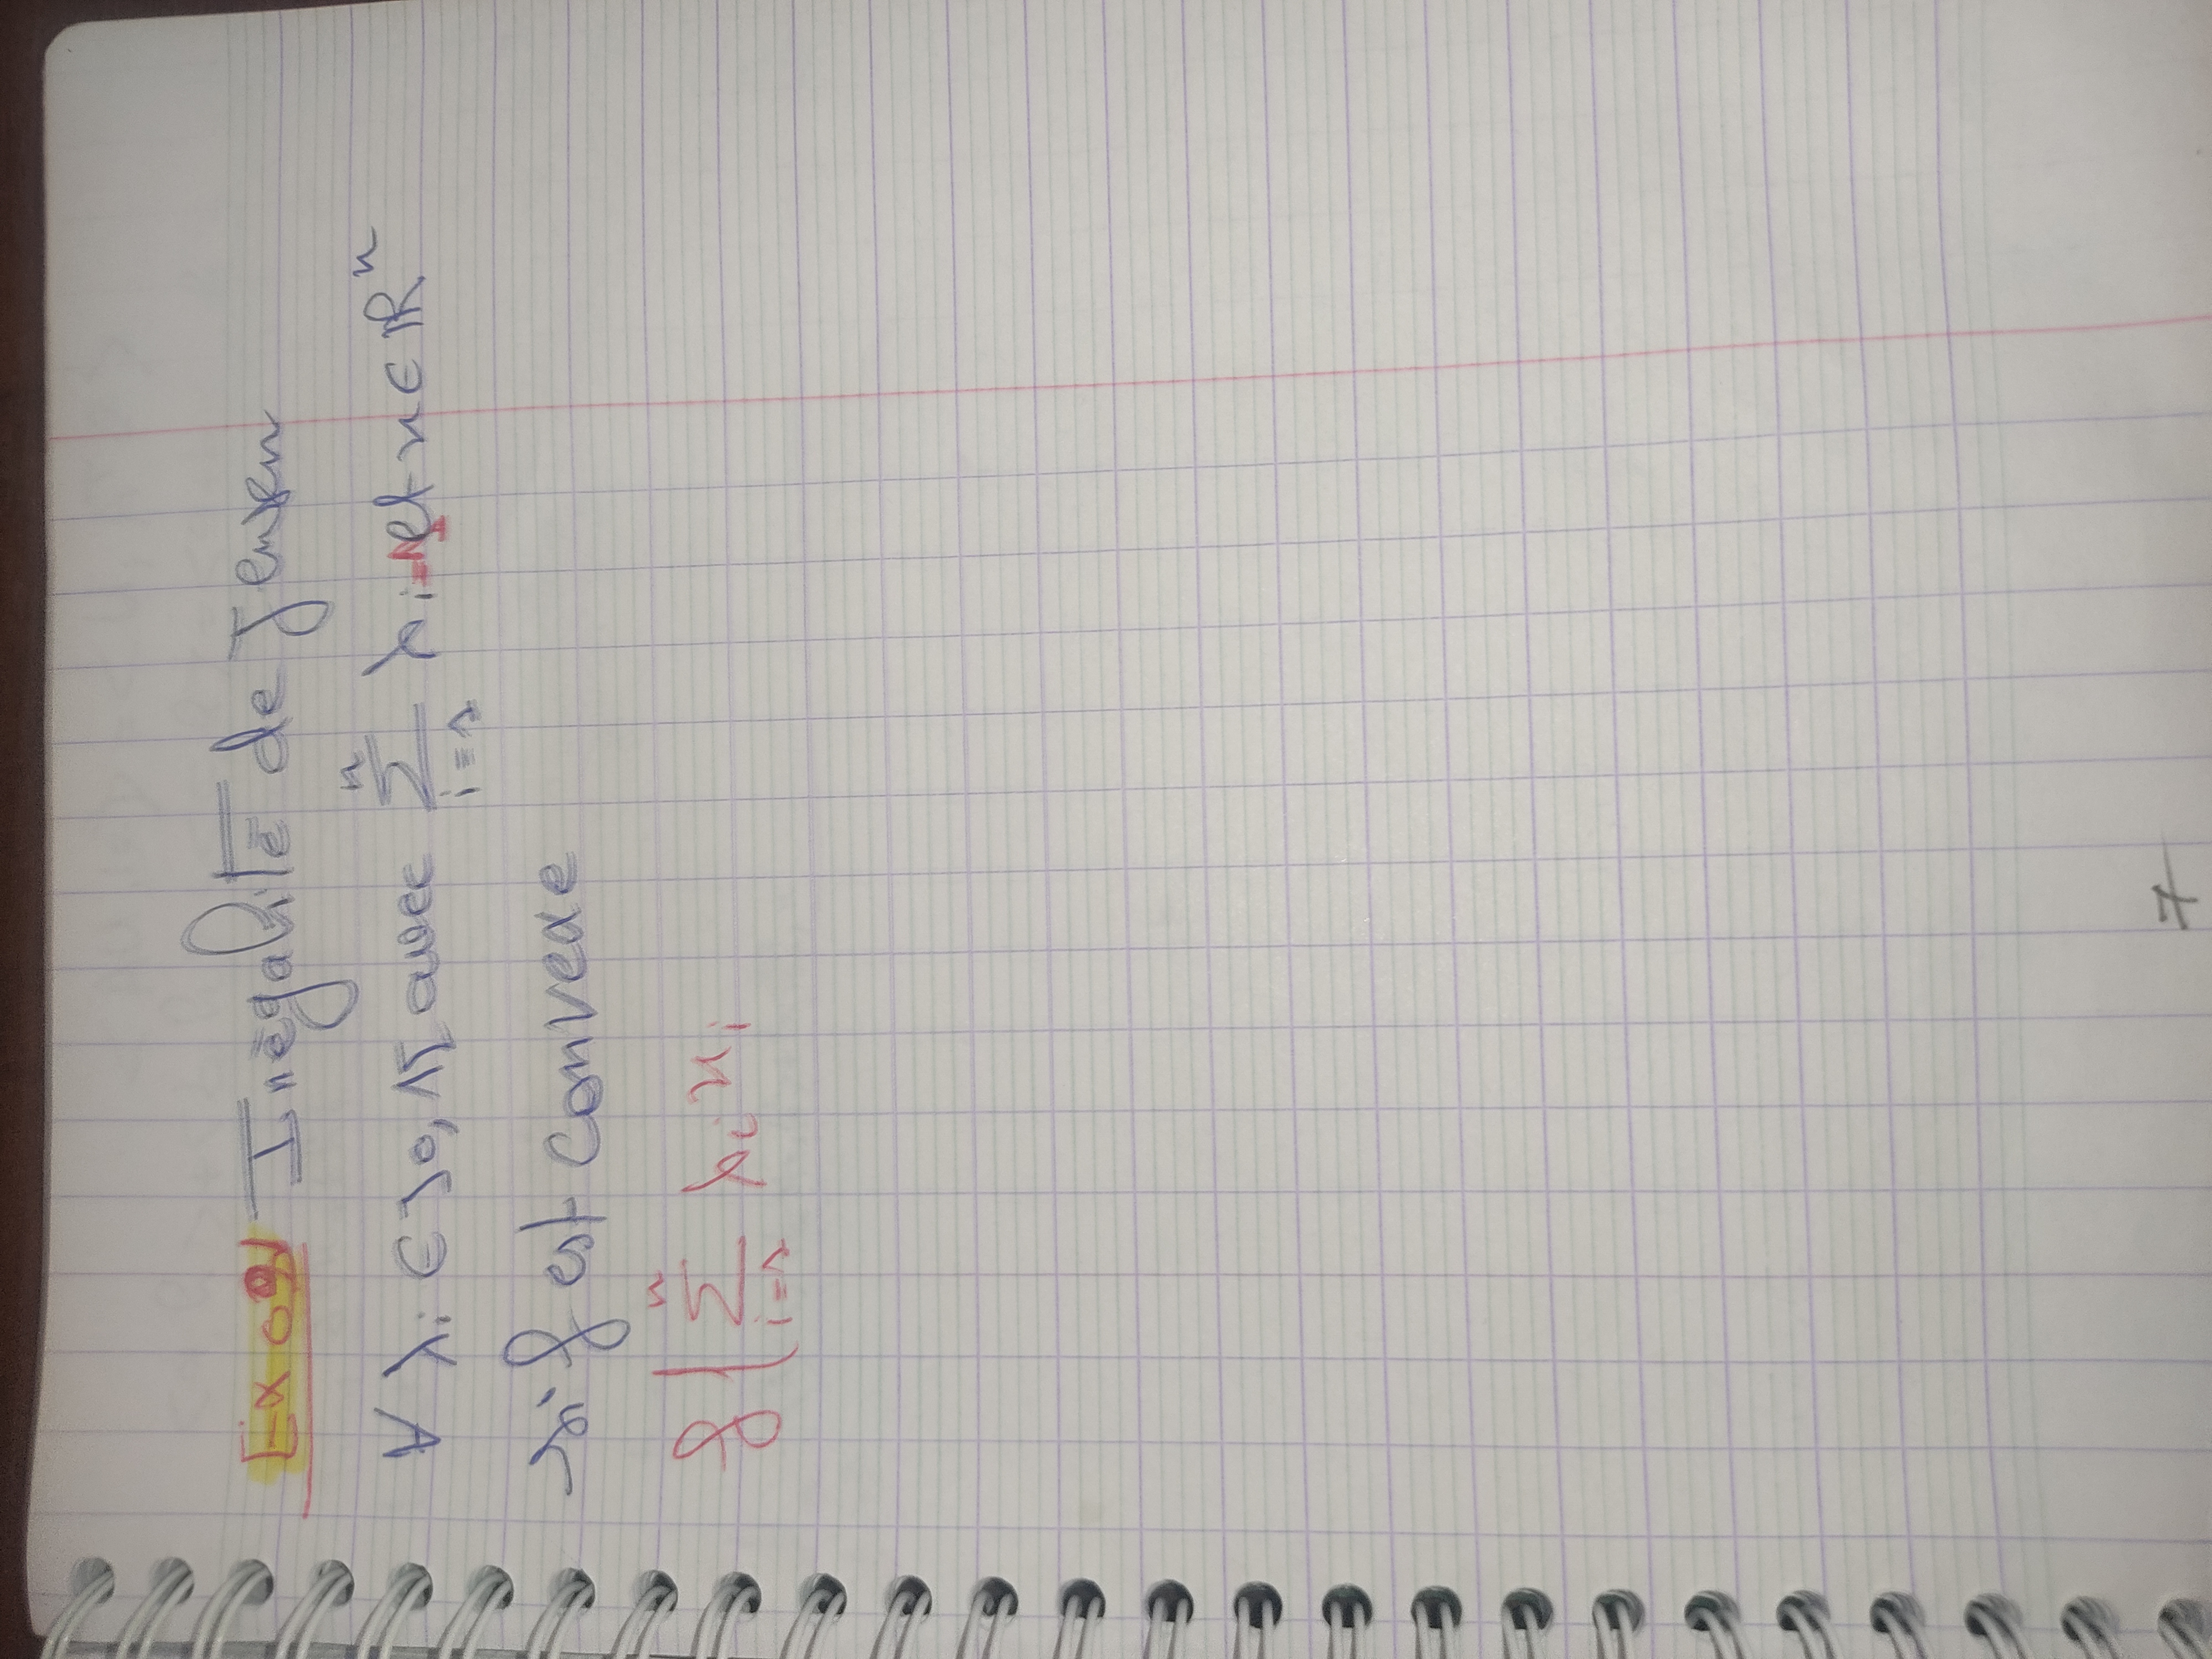 Exo9 Inégalité de Jensen
∀ λi ∈ ]0, 1[ avec Σ_{i=1}^{n} λi = 1 et x ∈ ℝ^n
si f est convexe
f( Σ_{i=1}^{n} λi xi
7